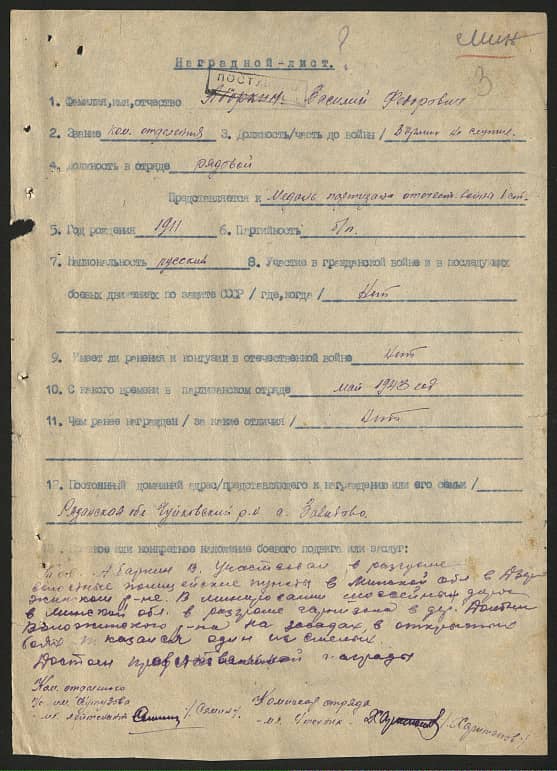 Мин
3
Наградной-лист.
ПОСТ
1. Фамилия,имя,отчество Василий Федорович
2. Звание ком. отделения 3. Должность/часть до войны / В армии не служил.
4. Должность в отряде рядовой
Представляется к Медаль партизана отечест. война
5. Год рождения 1911 6. Партийность б/п.
7. Национальность русский 8. Участие в гражданской войне и в последующих
боевых движениях по защите СССР / где,когда / Нет
9. Имеет ли ранения и контузии в отечественной войне Нет
10. С какого времени в партизанском отряде май 1943 год
11. Чем ранее награжден / за какие отличия / Нет
12. Постоянный домашний адрес/представляемого к награждению или его семьи /
Рязанская обл. р-н
или конкретное изложение боевого подвига или заслуг:
Тов. В. Участвовал в разгроме
полицейские пункты в Минской обл. в
р-не. В минировании шоссейных дорог
в Минской обл. в разгроме гарнизона в дер.
р-на на засадах в открытых
боях показался один из смелых.
Достоин правительственной награды
Ком. отделения
им. Кутузова
мл. лейтенант
Комиссар отряда
/Харитонов/